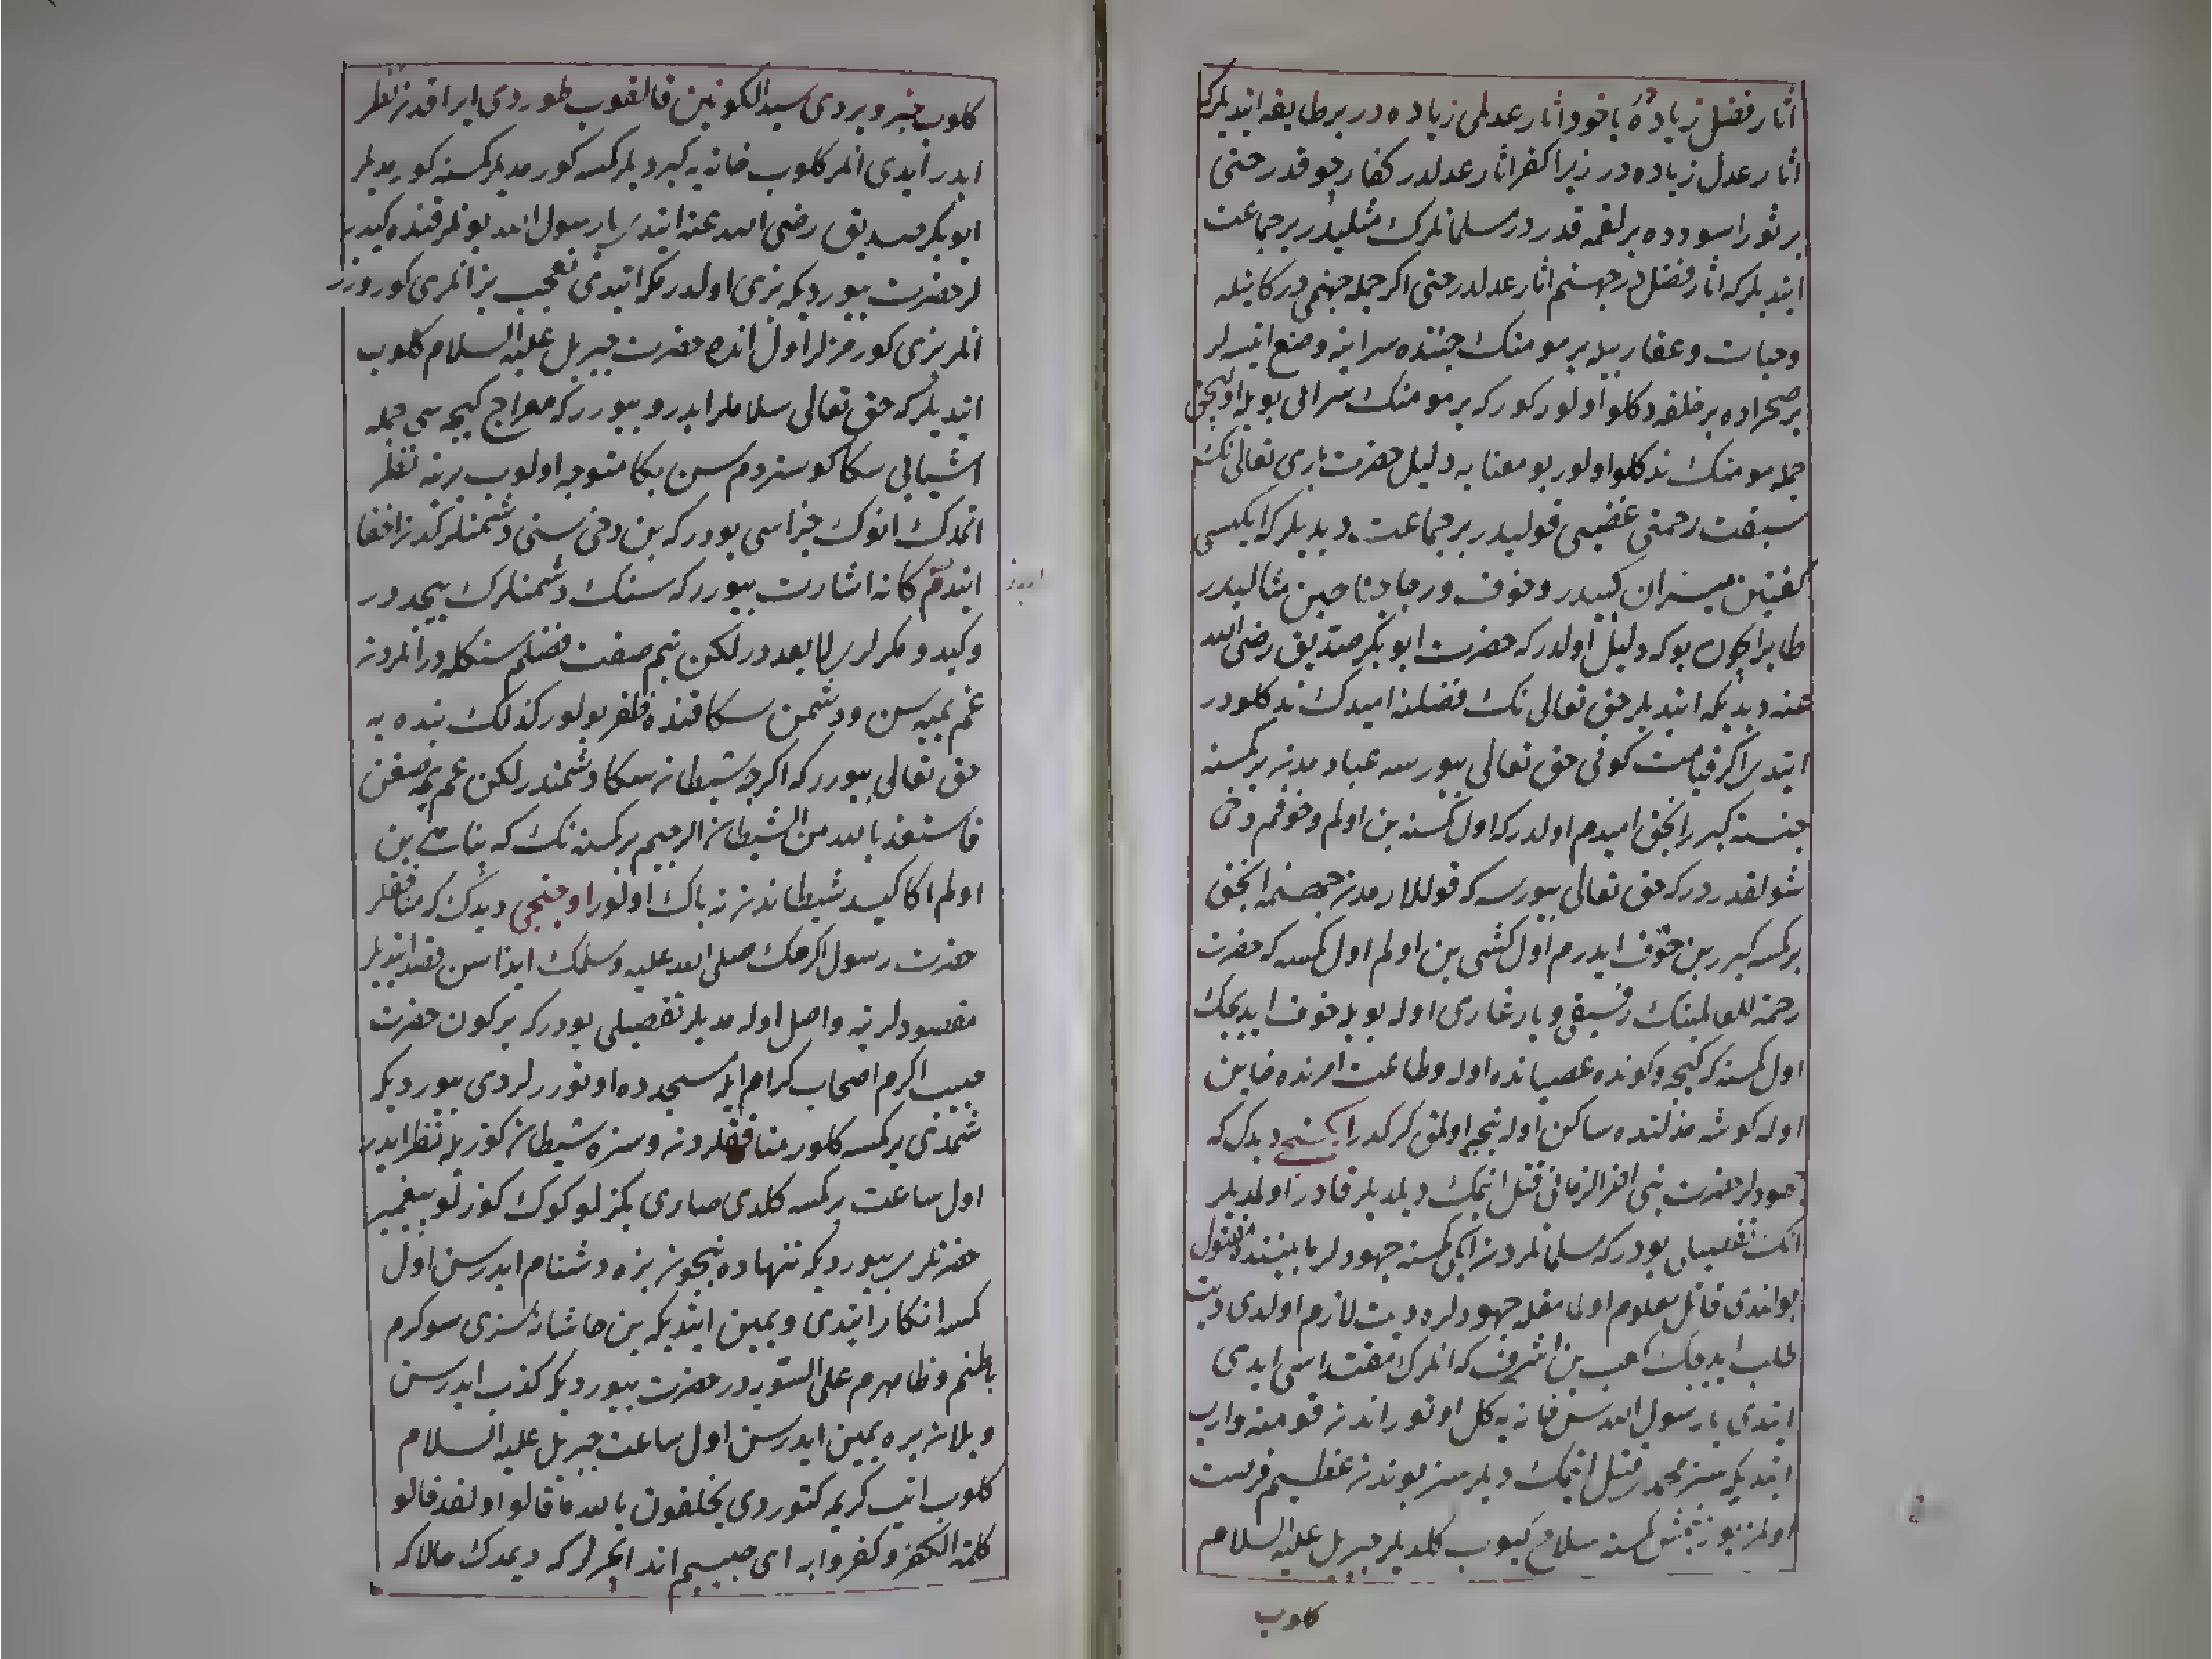 اثار فضل زیاده یاخود اثار عدلمی زیاده در بر طایفه ایتدیلرکه
اثار عدل زیاده در زیرا اکفر اثار عدلدر کفار چوقدر حتی
بر ثور اسودده بر لقمه قدر در مسلمانلرك مثلیدر بر جماعت
ایتدیلر که اثار فضلدر جهنم اثار عدلدر حتی اکر جمله جهنمی درکاتیله
وحیات وعقاربیله بر مومنك جنتده سراینه وضع ایتسه لر
بر صحراده بر حلقه دکلو اولور کورکه بر مومنك سرایی بویله اولیجق
جمله مومنك نه دکلو اولور بو معنایه دلیل حضرت باری تعالی نك
سبقت رحمتی غضبی قولیدر بر جماعت دیدیلر که ایکیسی
کفتین میزان کبیدر وخوف ورجا جناحین مثالیدر
طایر ایچون بوکه دلیل اولدرکه حضرت ابو بکر صدیق رضی الله
عنه دیدیکه ایتدیلر حق تعالی نك فضلنه امیدك نه دکلودر
ایتدی اکر قیامت کونی حق تعالی بیورسه عبادمدن بر کمسنه
جنته کیرر انجق امیدم اولدرکه اول کمسنه بن اولم وخوفم دخی
شولقدر درکه حق تعالی بیورسه که قوللارمدن جهنمه انجق
بر کمسه کیرر بن خوف ایدرم اول کشی بن اولم اول کمسه که حضرت
رحمة للعالمینك رفیقی ویار غاری اوله بویله خوف ایدیجك
اول کمسنه که کیجه وکوندز عصیانده اوله وطاعت امرنده خاین
اوله کوشه مذلتده ساکن اوله نیجه اولمق کرکدر ایکنجی دیدك که
جهودلر حضرت نبی اخر الزمانی قتل ایتمك دیلدیلر قادر اولمدیلر
انك تفصیلی بودرکه مسلمانلردن ایکی کمسنه جهودلر مابیننده مقتول
بولندی قاتل معلوم اولمامغله جهودلره دیت لازم اولدی دیت
طلب ایدیجك کعب بن اشرف که انلرك مقتداسی ایدی
ایتدی یا رسول الله سن خانه یه کل اوتور اندن قومنه واروب
ایتدیکه سز محمدی قتل ایتمك دیلرسز بوندن عظیم فرصت
اولمز یوز یتمش کمسنه سلاح کیوب کلدیلر جبریل علیه السلام
کلوب
کلوب خبر ویردی سید الکونین قالقوب طوردی ایراقدن نظر
ایدر ایدی انلر کلوب خانه یه کیردیلر کمسه کورمدیلر کمسنه کورمدیلر
ابو بکر صدیق رضی الله عنه ایتدی یا رسول الله بونلر قنده کیدر
لر حضرت بیوردیکه بزی اولدرمکه ایتدی تعجب بز انلری کوروزز
انلر بزی کورمزلر اول انده حضرت جبریل علیه السلام کلوب
ایتدیلر که حق تعالی سلاملر ایدر وبیوررکه معراج کیجه سی جمله
اشیایی سکا کوستردم سن بکا متوجه اولوب برینه نظر
اتمدك انوك جزاسی بودرکه بن دخی سنی دشمنلرکدن اخفا
ایتدم کانه اشارت بیوررکه سنك دشمنلرك بیحددر
وکید ومکرلری لا یعددر لکن بنم صفت فضلم سنکله در انلردن
غم یمیه سن ودشمن سکا قنده ظفر بولور کذلك بنده یه
حق تعالی بیوررکه اکرچه شیطان سکا دشمندر لکن غم یمه صغن
فاستعذ بالله من الشیطان الرجیم بر کمسنه نك که پناهی بن
اولم اکا کید شیطاندن نه باك اولور اوچنجی دیدك که منافقلر
حضرت رسول اکرمك صلی الله علیه وسلمك ایذاسن قصد ایتدیلر
مقصودلرینه واصل اوله مدیلر تفصیلی بودرکه بر کون حضرت
حبیب اکرم اصحاب کرام ایله مسجدده اوتوررلردی بیوردیکه
شمدی بر کمسه کلور منافقلردن وسزه شیطان کوزیله نظر ایدر
اول ساعت بر کمسه کلدی صاری بکزلو کوك کوزلو پیغمبر
حضرتلری بیوردیکه تنهاده نیچون بزه دشنام ایدرسن اول
کمسه انکار ایتدی ویمین ایتدیکه بن حاشا سزی سوکرم
باطنم وظاهرم علی السویه در حضرت بیوردیکه کذب ایدرسن
ویلان یره یمین ایدرسن اول ساعت جبریل علیه السلام
کلوب ایت کریمه کتوردی یحلفون بالله ما قالوا ولقد قالوا
کلمة الکفر وکفروا یه ای حبیبم اند ایچرلرکه دیمدك حالاکه